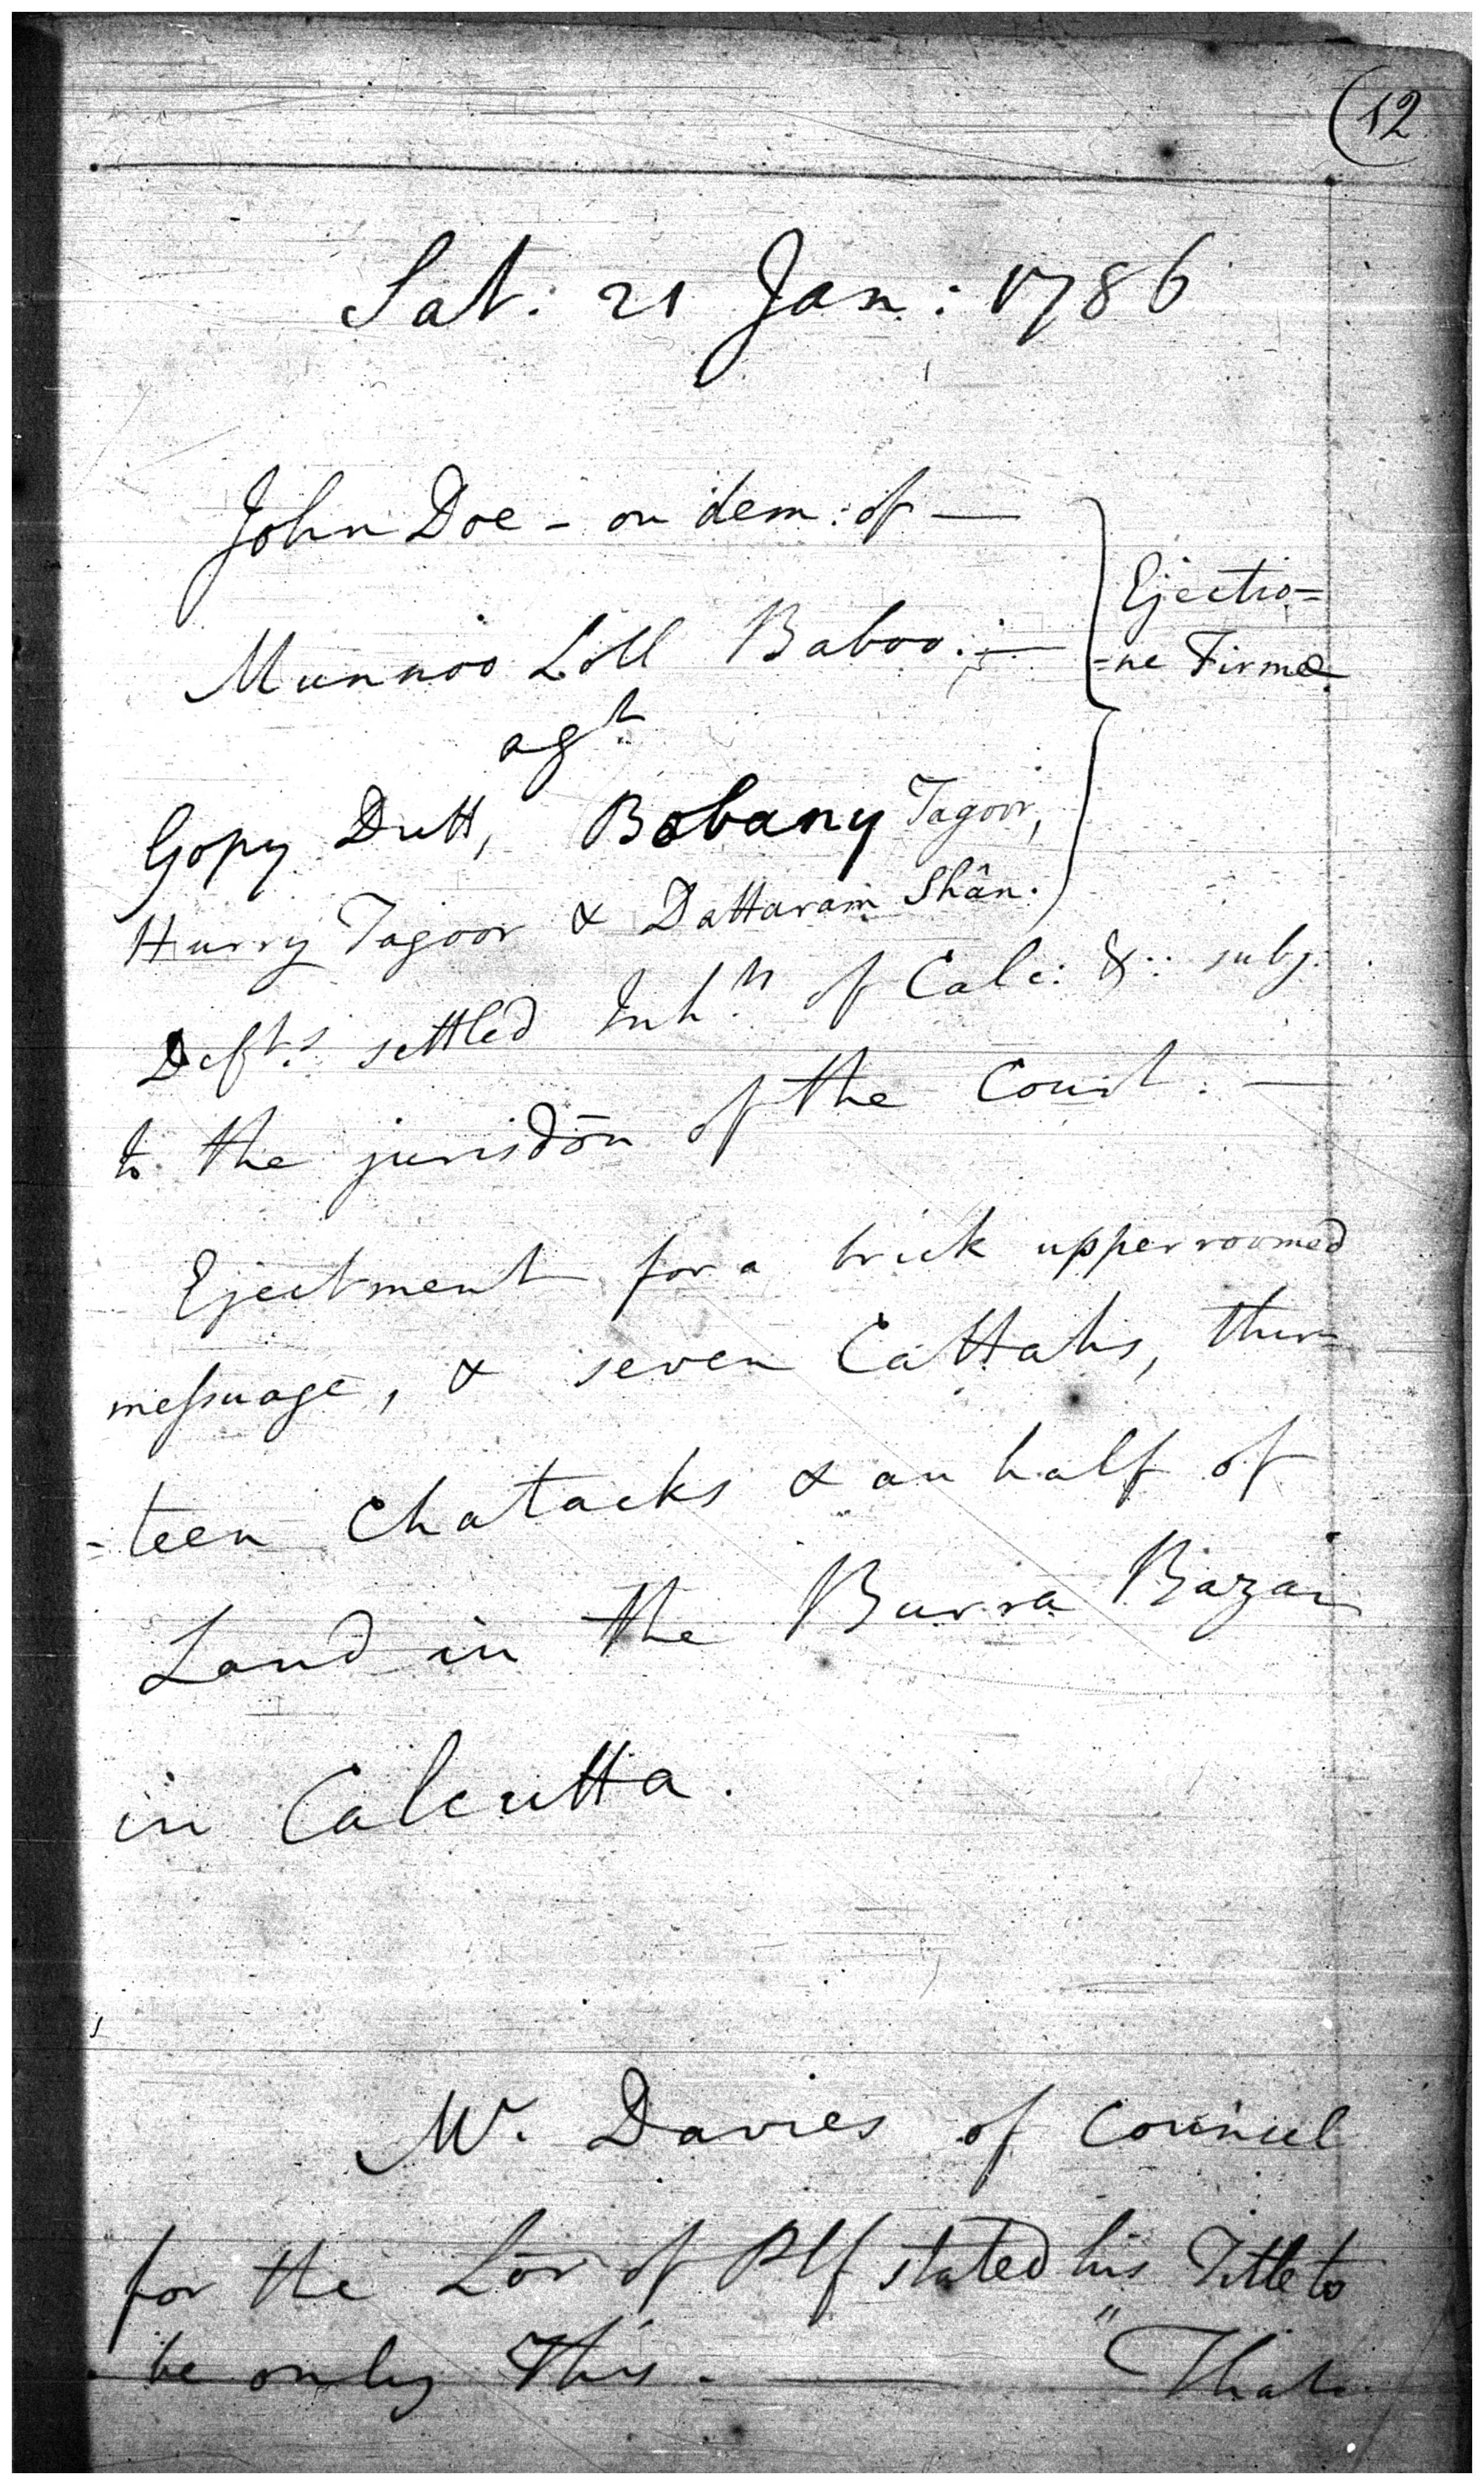 (12
Sat: 21 Jan: 1786
John Doe - on dem: of —
Munnoo Loll Baboo. —
Ejectio=
=ne Firmæ
agt
Gopy Dutt, Bobany Tagoor,
Hurry Tagoor & Dattaram Shân.
Defts settled Inhts of Calc: & subj.
to the jurisdōn of the Court. —
Ejectment for a brick upperroomed
messuage, & seven Cattahs, thir=
=teen Chatacks & an half of
Land in the Burra Bazar
in Calcutta.
Mr. Davies of Council
for the Lōr of Plf stated his Title to
be only this. — "That